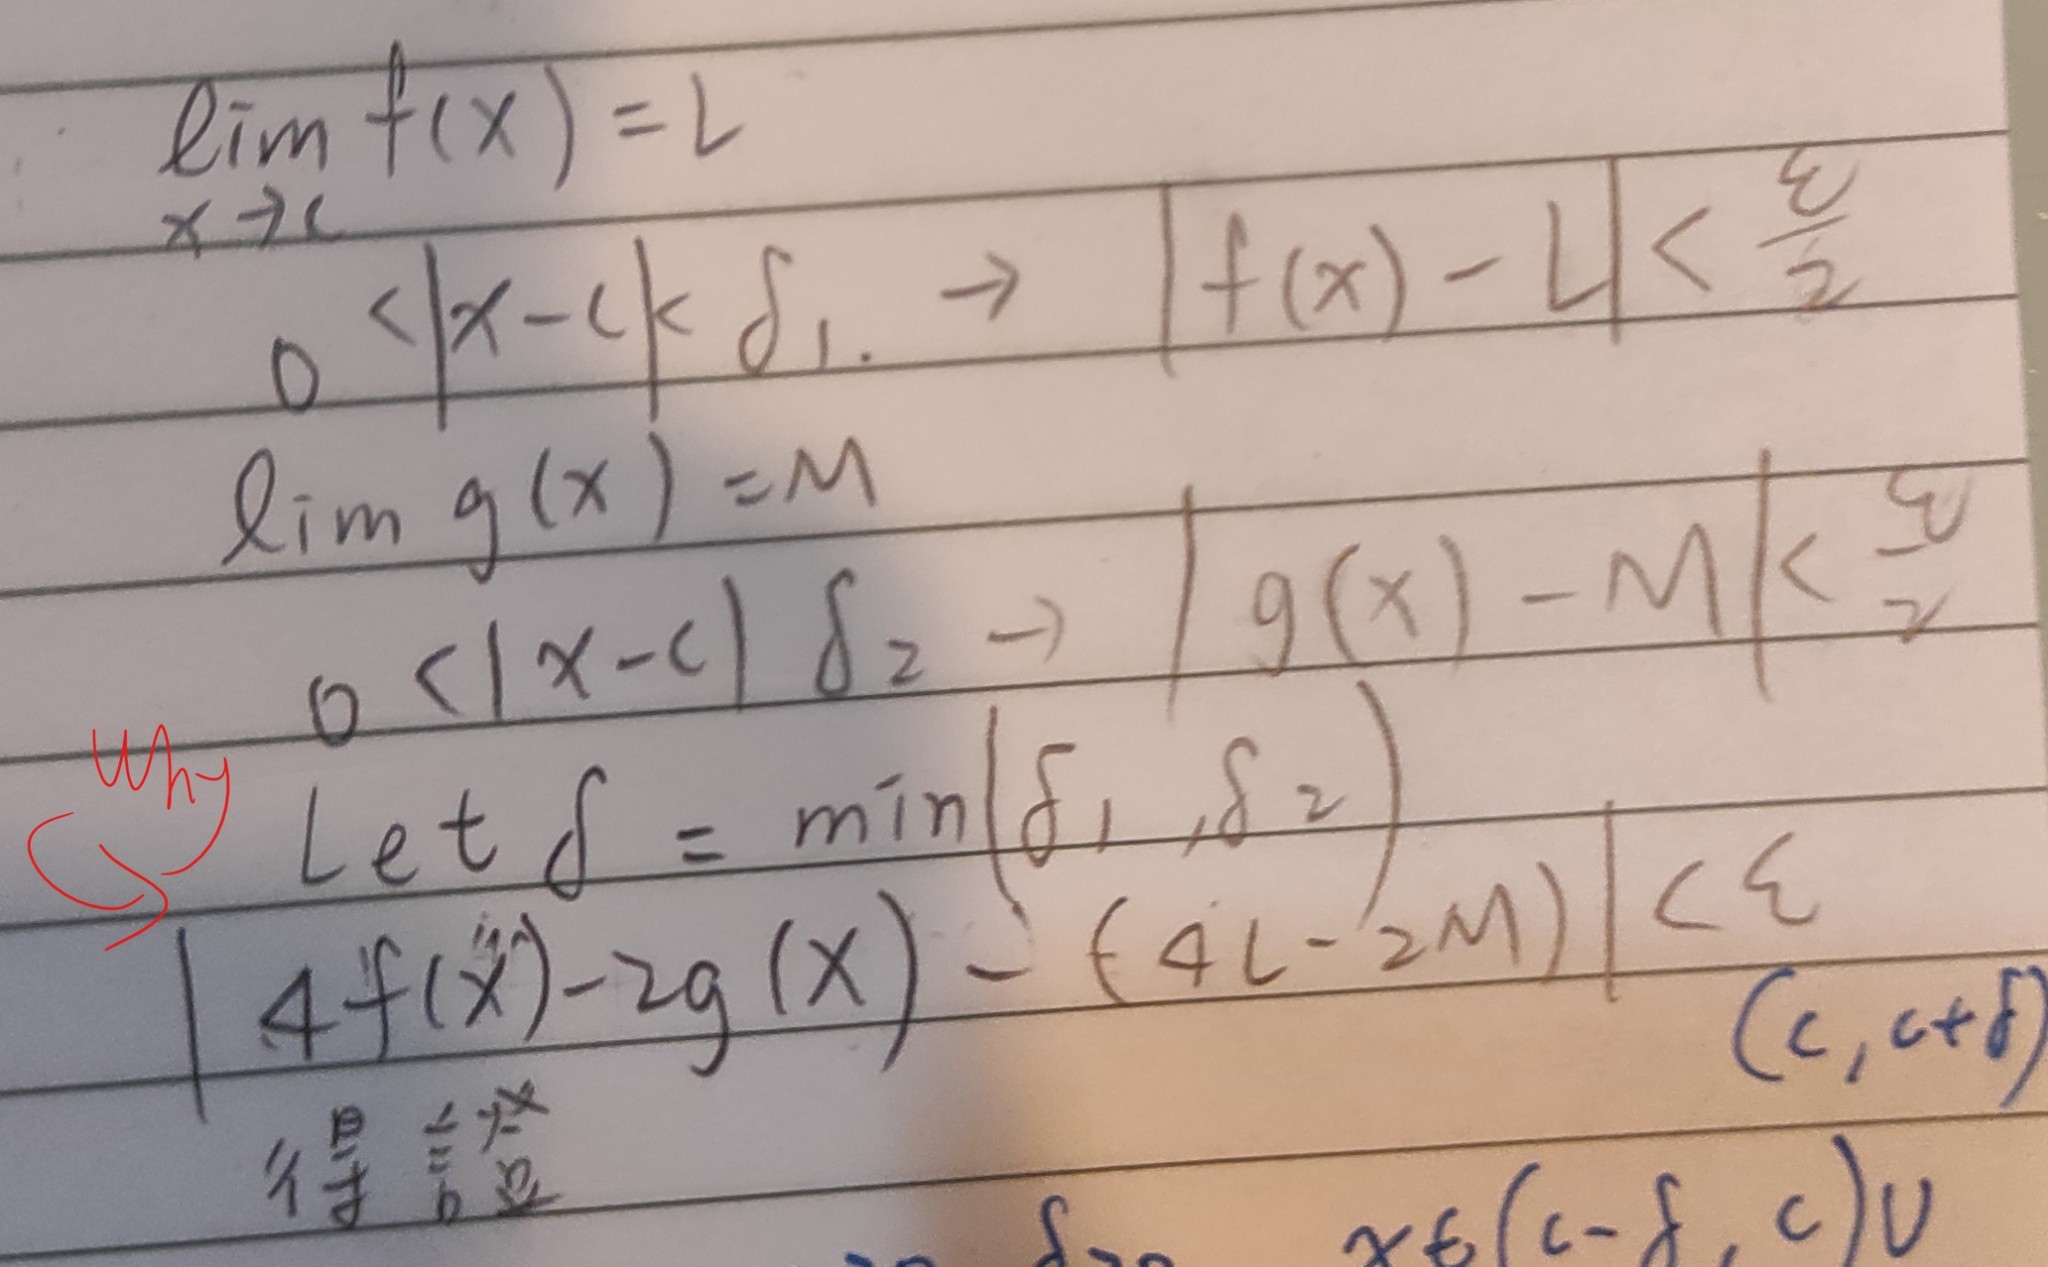 lim f(x) = L
x→c
0 < |x-c| < δ₁. → |f(x) - L| < ε/2
lim g(x) = M
0 < |x-c| δ₂ → |g(x) - M| < ε/2
Why
Let δ = min(δ₁, δ₂)
|4f(x) - 2g(x) - (4L - 2M)| < ε
(c, c+δ)
得證
x∈(c-δ, c)∪